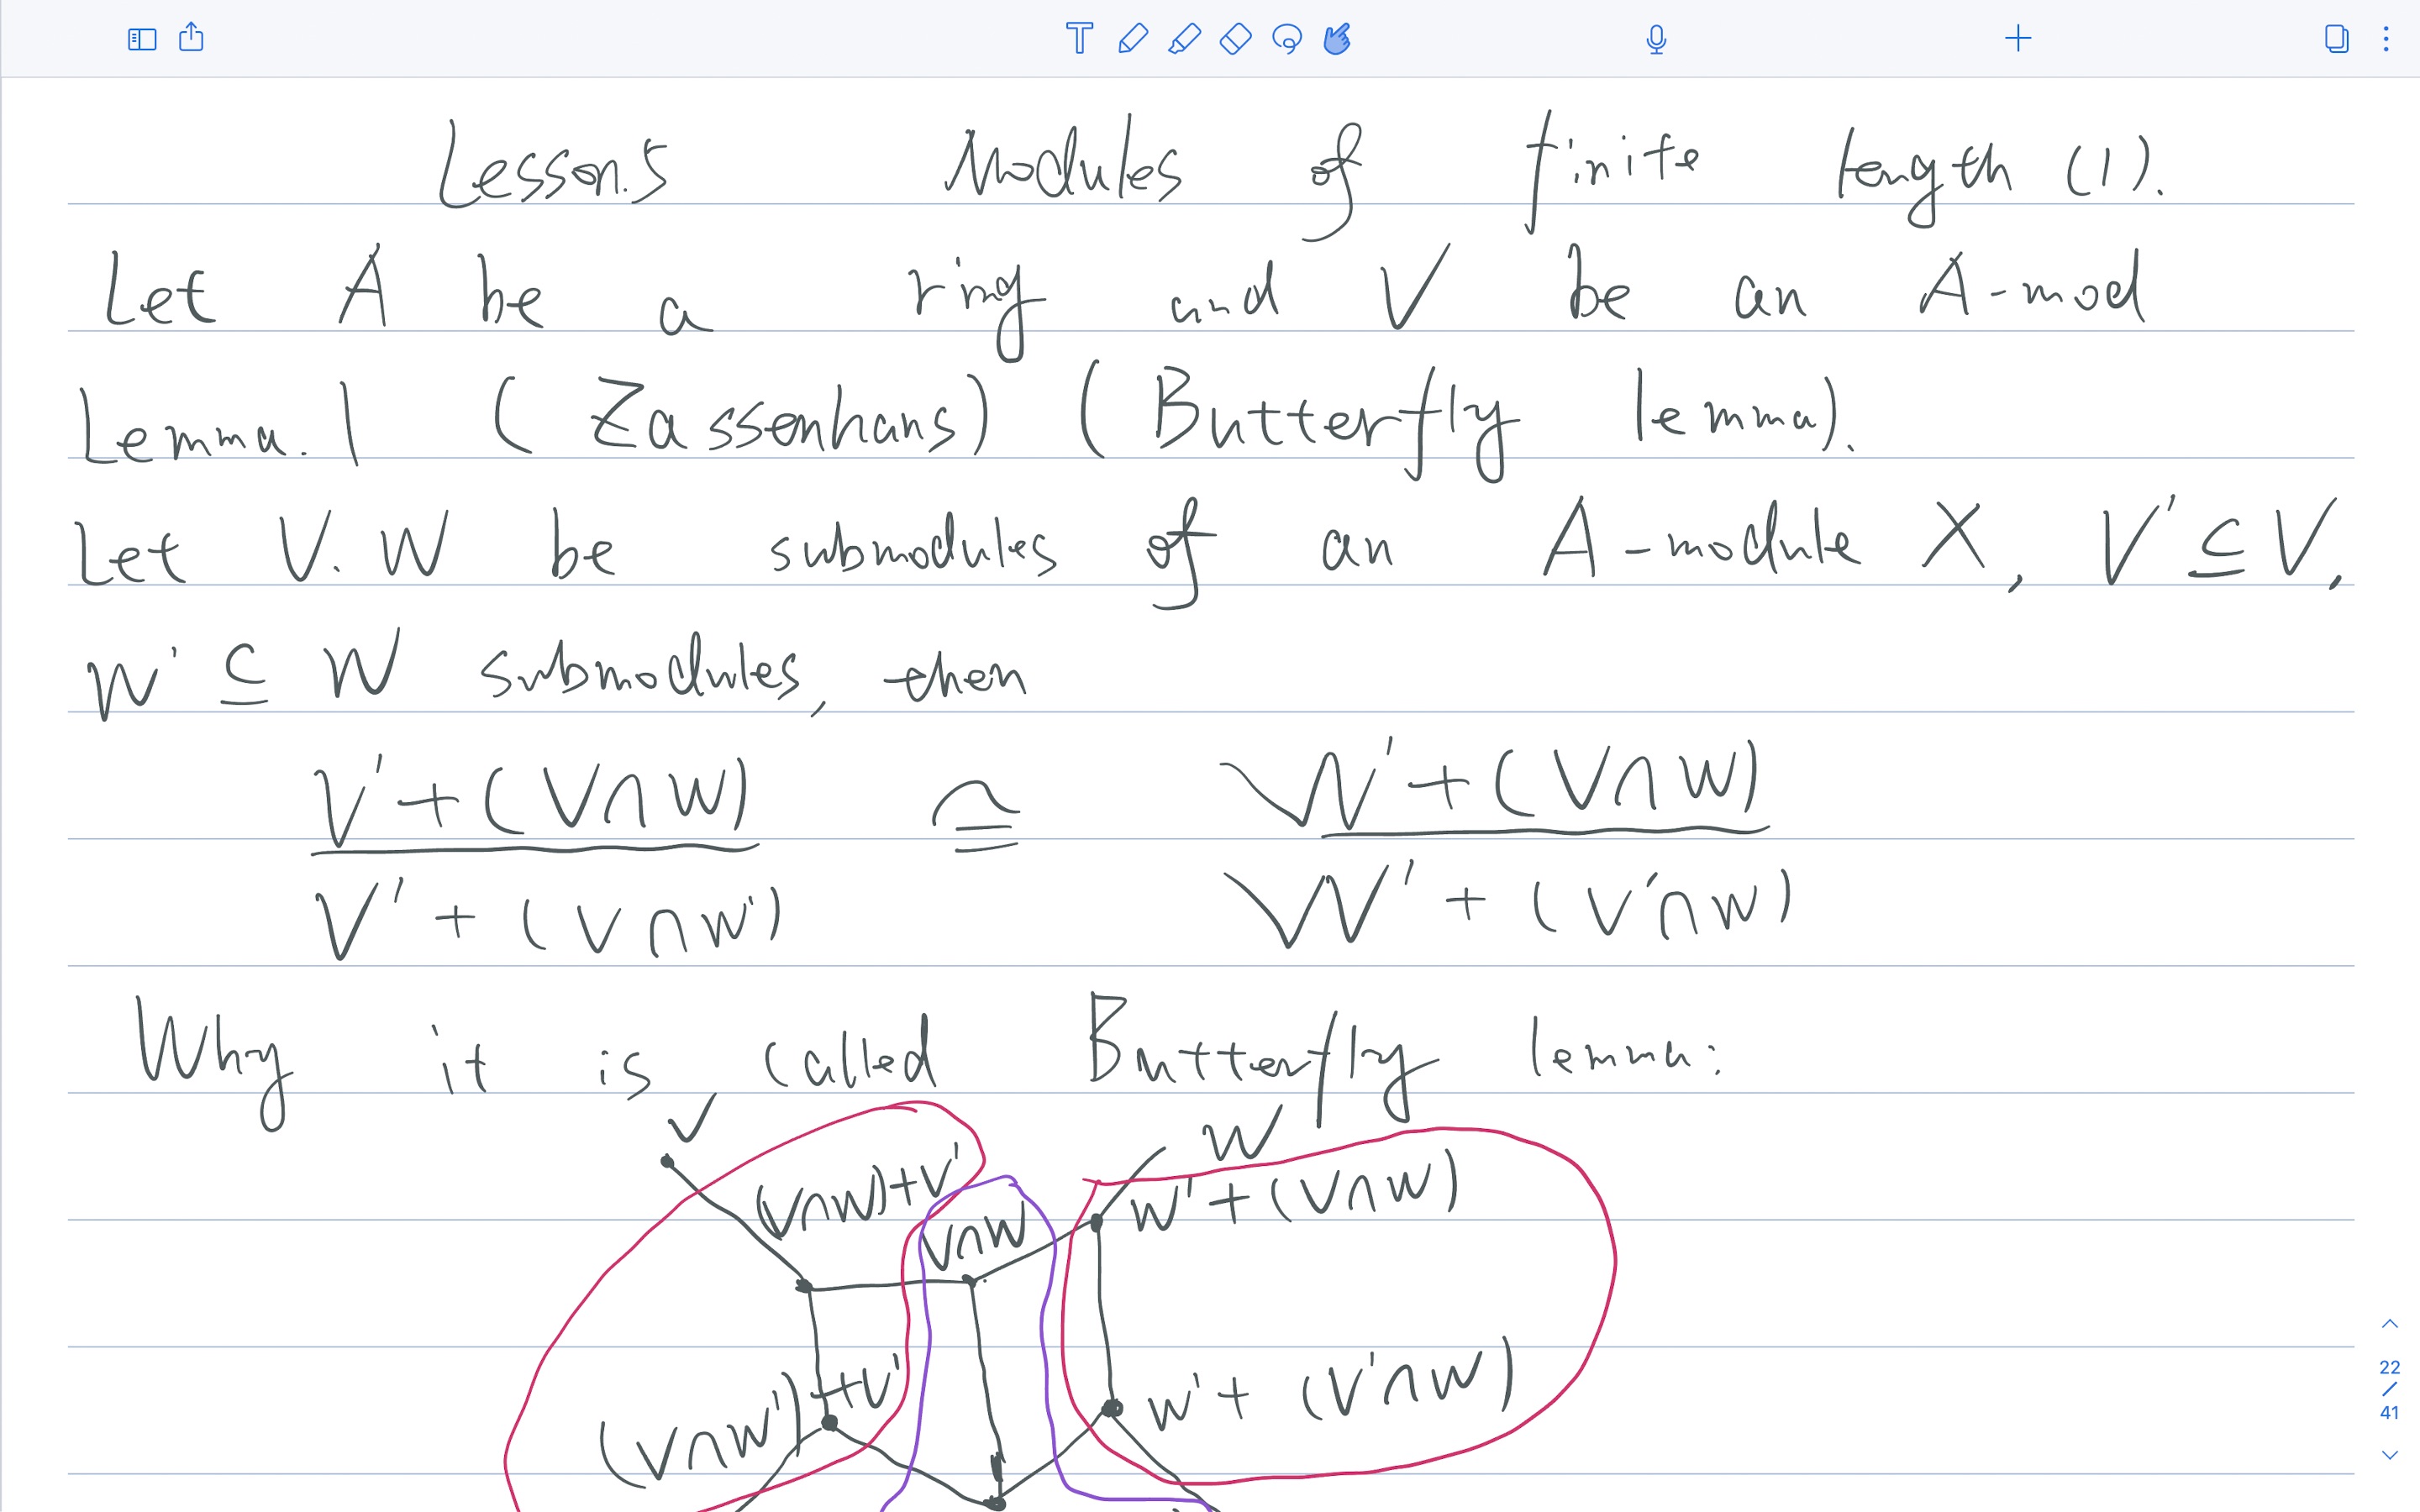 Lesson.5 Modules of finite length (1).
Let A be a ring and V be an A-mod
Lemma. 1 ( Zassenhans) (Butterfly lemma).
Let V. W be submodules of an A-module X, V' ⊆ V,
W' ⊆ W submodules, then
V' + (V∩W) ≅ W' + (V∩W)
V' + (V∩W') W' + (V'∩W)
Why it is called Butterfly lemma:
V
W
(V∩W)+V'
V∩W
W' + (V∩W)
(V∩W')+V'
W' + (V'∩W)
22
/
41